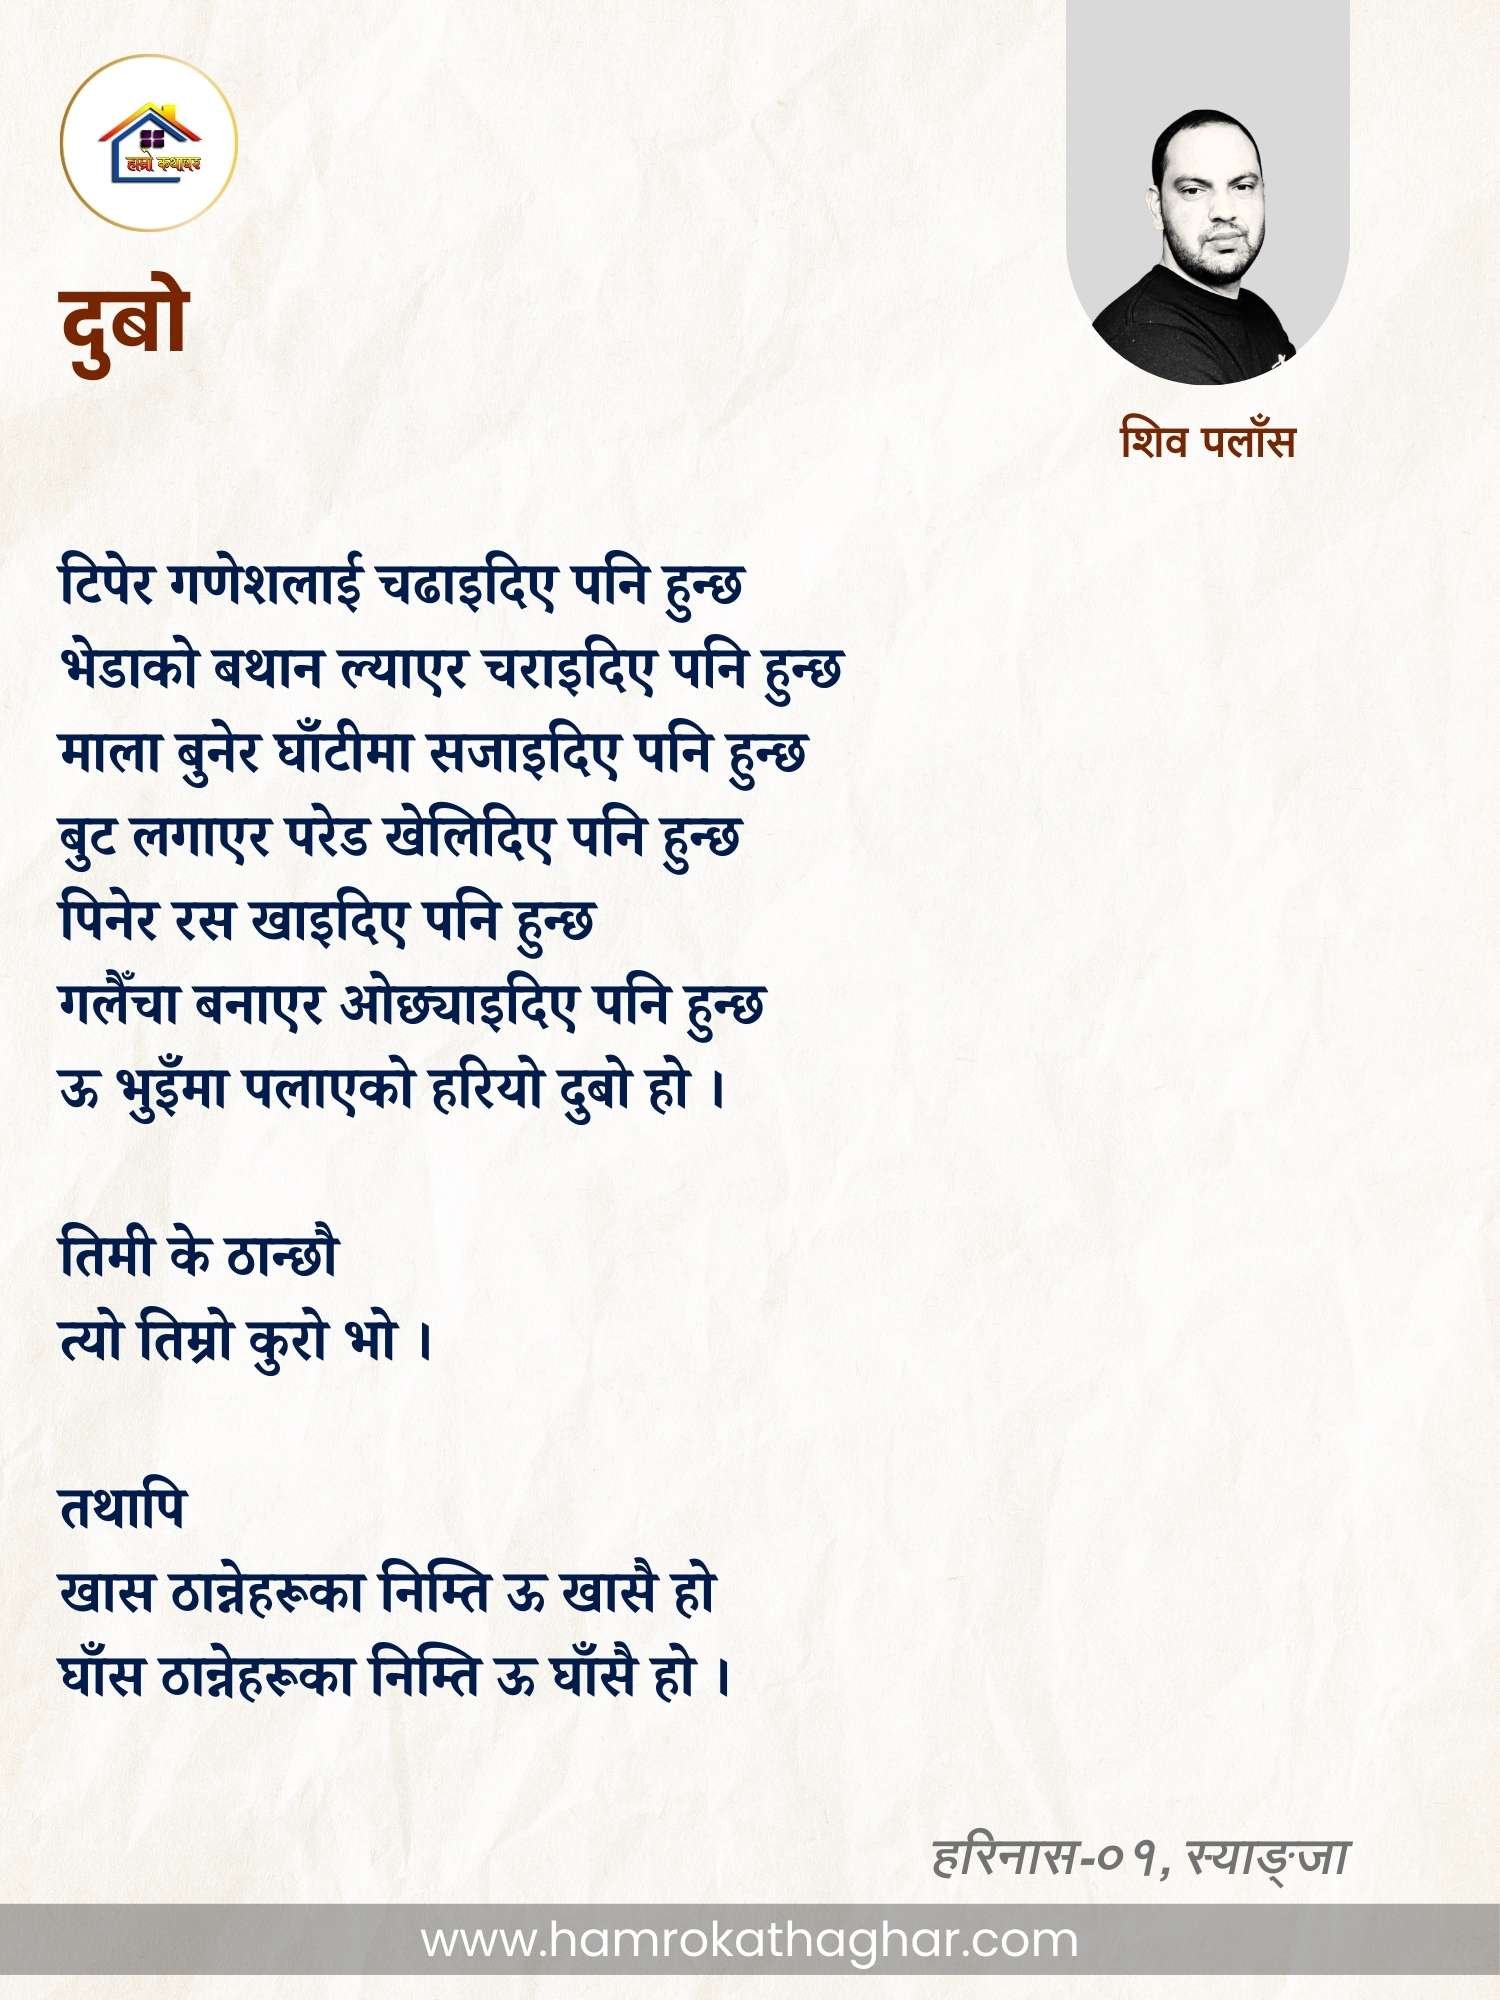 हाम्रो कथाघर
दुबो
शिव पलाँस
टिपेर गणेशलाई चढाइदिए पनि हुन्छ
भेडाको बथान ल्याएर चराइदिए पनि हुन्छ
माला बुनेर घाँटीमा सजाइदिए पनि हुन्छ
बुट लगाएर परेड खेलिदिए पनि हुन्छ
पिनेर रस खाइदिए पनि हुन्छ
गलैँचा बनाएर ओछ्याइदिए पनि हुन्छ
ऊ भुइँमा पलाएको हरियो दुबो हो ।
तिमी के ठान्छौ
त्यो तिम्रो कुरो भो ।
तथापि
खास ठान्नेहरूका निम्ति ऊ खासै हो
घाँस ठान्नेहरूका निम्ति ऊ घाँसै हो ।
हरिनास-०१, स्याङ्जा
www.hamrokathaghar.com